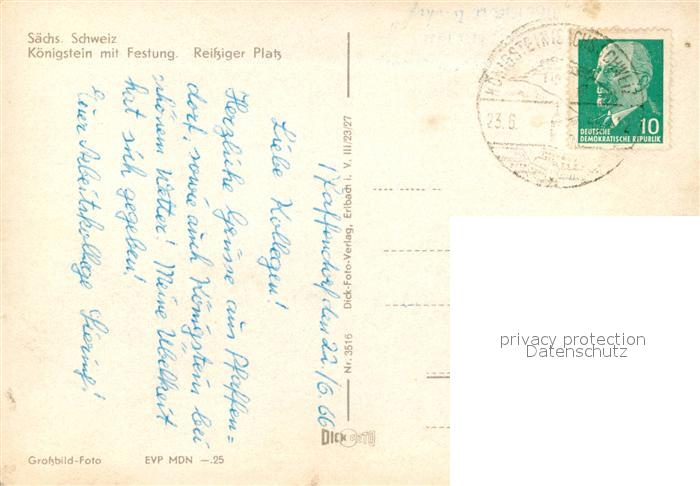 Sächs. Schweiz
Königstein mit Festung. Reißiger Platz
Pfaffendorf den 22./6.66
Liebe Kollegen!
Herzliche Grüsse aus Pfaffen=
dorf, sowie auch Königstein bei
schönem Wetter! Meine Übelkeit
hat sich gegeben!
Euer Arbeitskollege
Großbild-Foto EVP MDN —.25
Nr. 3516 Dick-Foto-Verlag, Erlbach i. V. III/23/27
DICK FOTO
KÖNIGSTEIN (SÄCHS. SCHWEIZ)
23.6.
DEUTSCHE
DEMOKRATISCHE REPUBLIK
10
privacy protection
Datenschutz